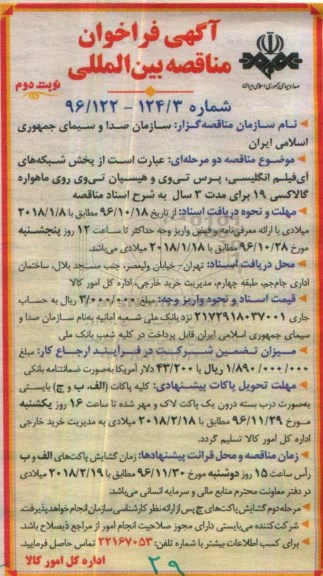 آگهی فراخوان
مناقصه بین‌المللی
نوبت دوم
صدا و سیمای جمهوری اسلامی ایران
شماره ۱۲۴/۳ - ۹۶/۱۲۲
نام سازمان مناقصه‌گزار: سازمان صدا و سیمای جمهوری
اسلامی ایران
موضوع مناقصه دو مرحله‌ای: عبارت است از پخش شبکه‌های
آی‌فیلم انگلیسی، پرس تی‌وی و هیسپان تی‌وی روی ماهواره
گالاکسی ۱۹ برای مدت ۳ سال به شرح اسناد مناقصه
مهلت و نحوه دریافت اسناد: از تاریخ ۹۶/۱۰/۱۸ مطابق با ۲۰۱۸/۱/۸
میلادی با ارائه معرفی‌نامه و فیش واریز وجه حداکثر تا ساعت ۱۲ روز پنجشنبه
مورخ ۹۶/۱۰/۲۸ مطابق با ۲۰۱۸/۱/۱۸ میلادی می‌باشد.
محل دریافت اسناد: تهران - خیابان ولیعصر، جنب مسجد بلال، ساختمان
اداری جام‌جم، طبقه چهارم، مدیریت خرید خارجی، اداره کل امور کالا
قیمت اسناد و نحوه واریز وجه: مبلغ ۳/۰۰۰/۰۰۰ ریال به حساب
جاری ۲۱۷۲۹۱۸۰۳۷۰۰۱ نزد بانک ملی شعبه امانیه به‌نام سازمان صدا و
سیمای جمهوری اسلامی ایران قابل پرداخت در کلیه شعب بانک ملی
میزان تضمین شرکت در فرایند ارجاع کار: مبلغ
۱/۸۹۰/۰۰۰/۰۰۰ ریال یا ۴۳/۲۰۰ دلار آمریکا به‌صورت ضمانتنامه بانکی
مهلت تحویل پاکات پیشنهادی: کلیه پاکات (الف، ب و ج) بایستی
به‌صورت درب بسته درون یک پاکت لاک و مهر شده تا ساعت ۱۶ روز یکشنبه
مورخ ۹۶/۱۱/۲۹ مطابق با ۲۰۱۸/۲/۱۸ میلادی به مدیریت خرید خارجی
اداره کل امور کالا تسلیم گردد.
زمان و مکان قرائت پیشنهادها: زمان گشایش پاکت‌های الف و ب
رأس ساعت ۱۵ روز دوشنبه مورخ ۹۶/۱۱/۳۰ مطابق با ۲۰۱۸/۲/۱۹ میلادی
در دفتر معاونت محترم منابع مالی و سرمایه انسانی می‌باشد.
مرحله دوم گشایش پاکت‌های ج پس از ارائه نظر کارشناسی سازمان انجام خواهد پذیرفت.
شرکت‌کننده می‌بایستی دارای مجوز صلاحیت انجام امور از مراجع ذیصلاح باشد.
برای کسب اطلاعات بیشتر با شماره تلفن: ۲۲۱۶۷۰۵۳ تماس حاصل فرمایید.
اداره کل امور کالا
۲۹